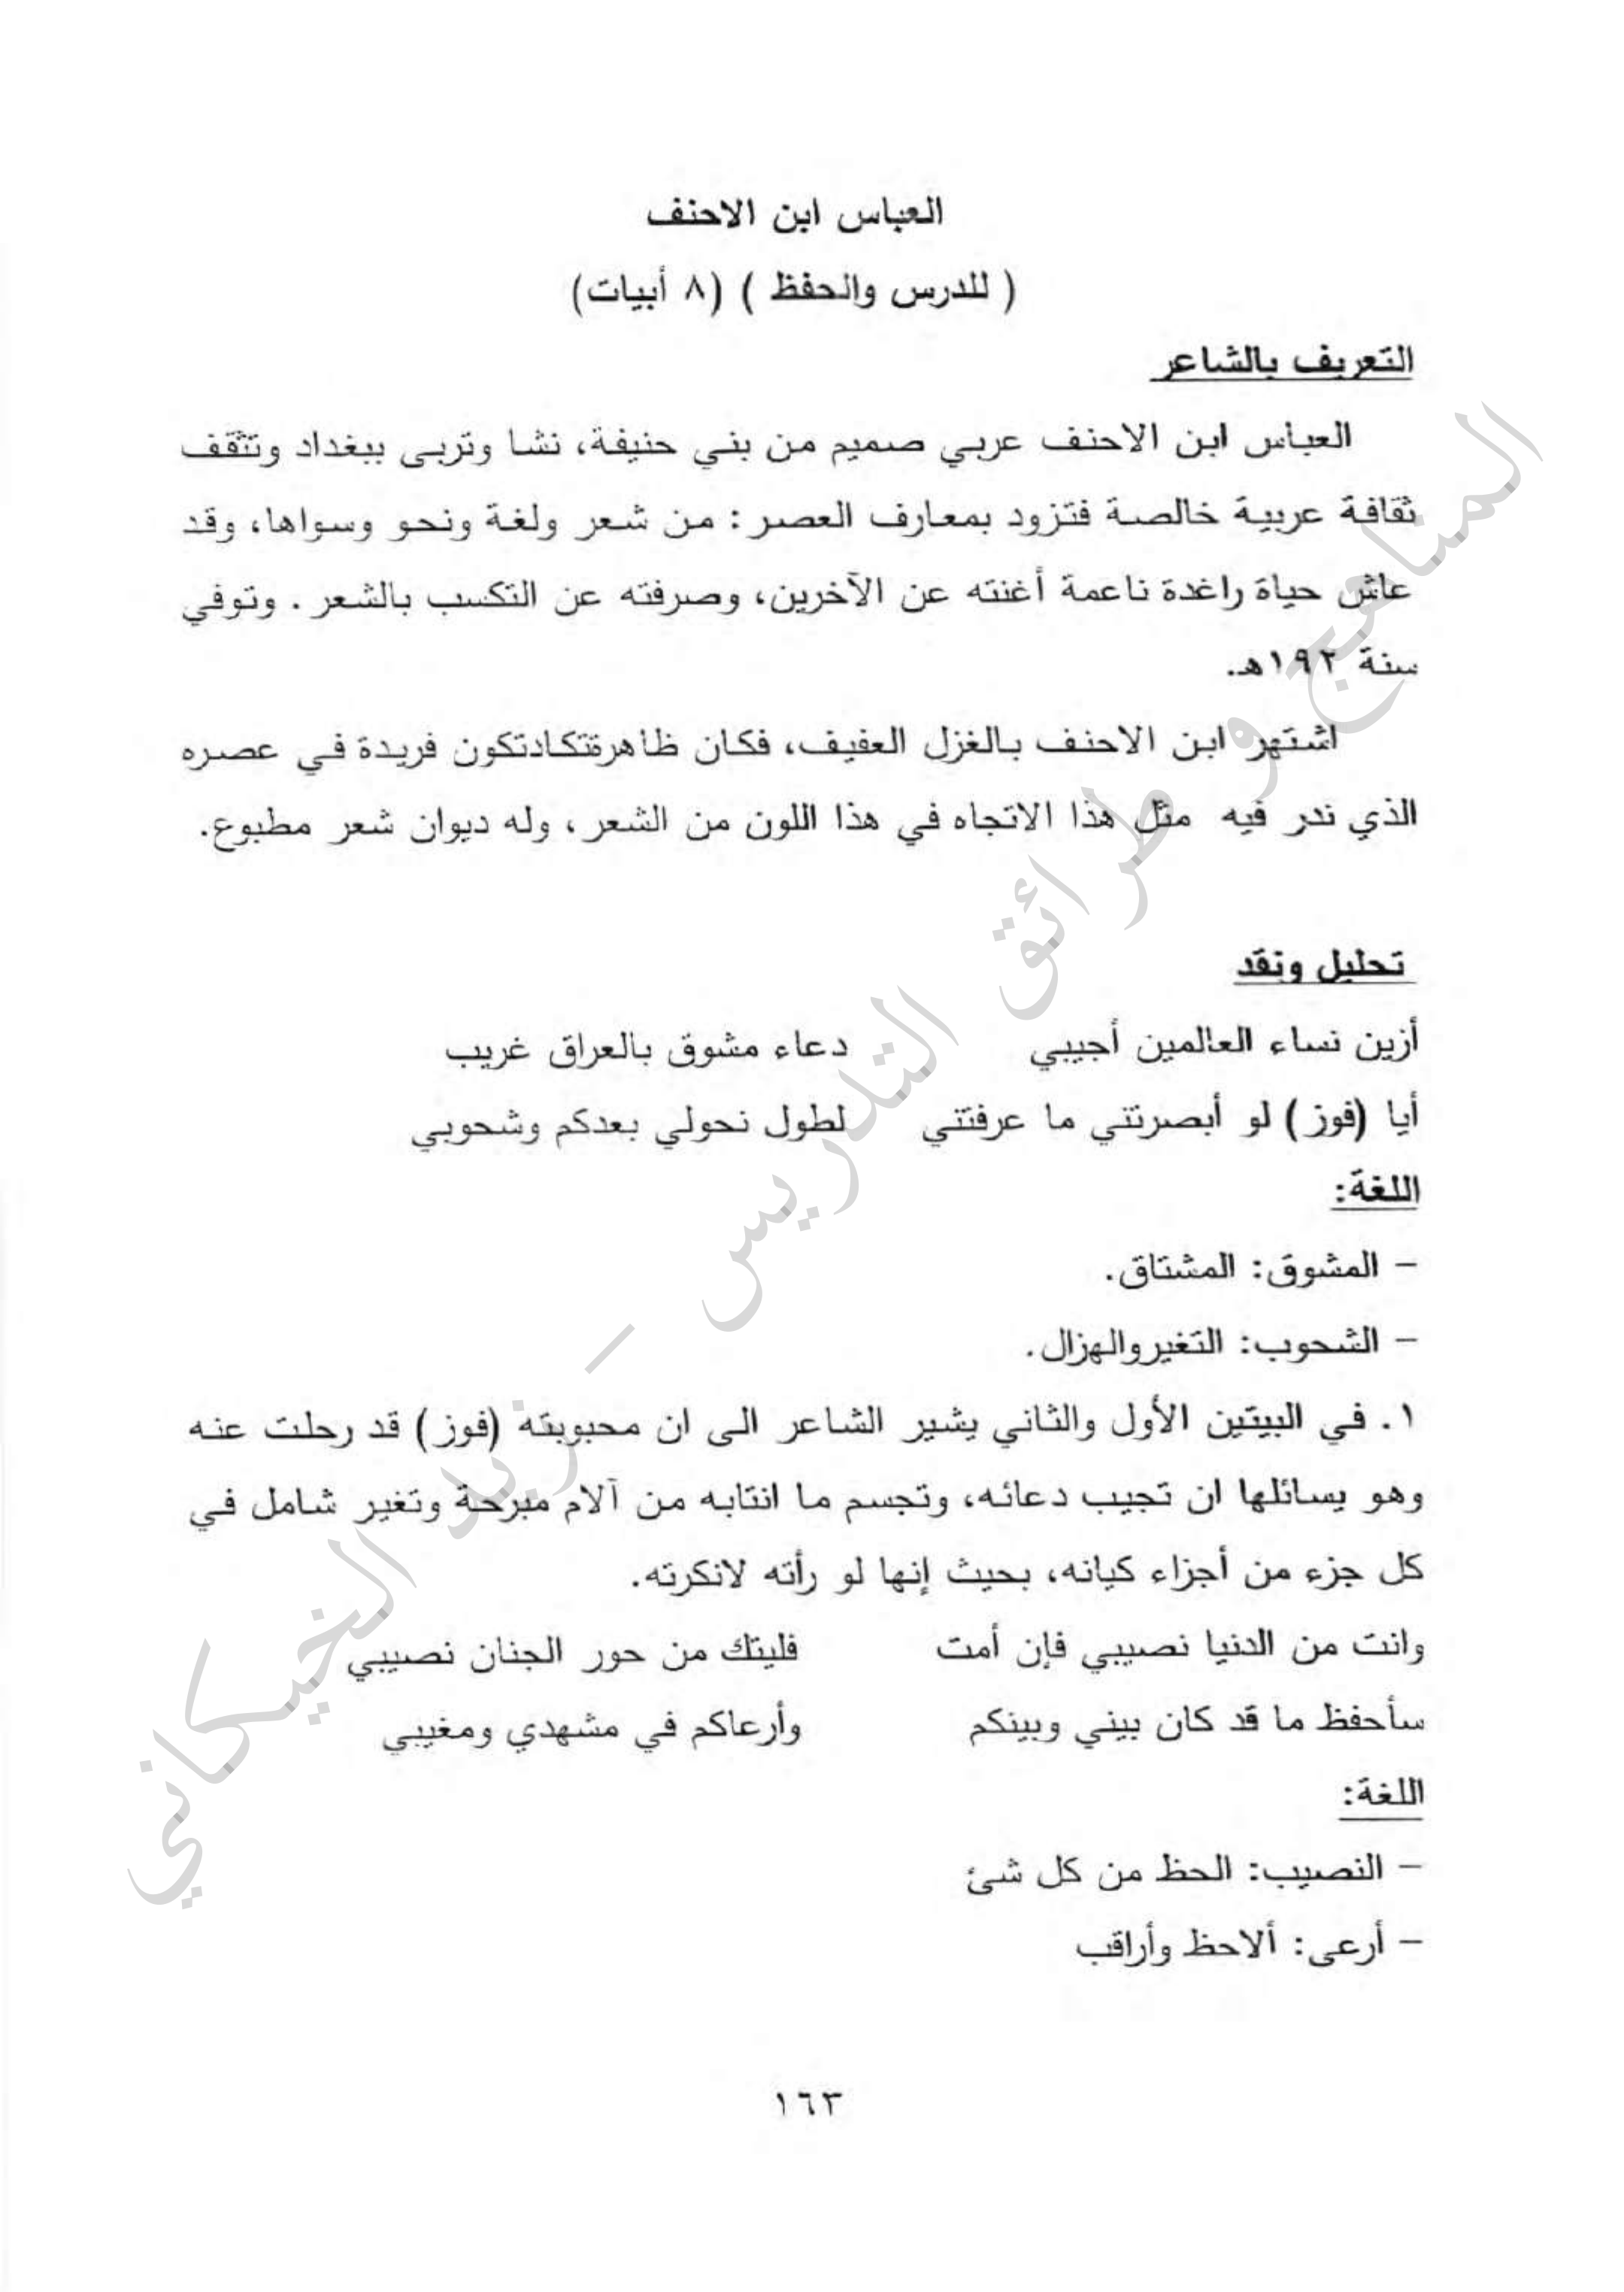 العباس ابن الاحنف
( للدرس والحفظ ) (٨ أبيات)
التعريف بالشاعر
العباس ابن الاحنف عربي صميم من بني حنيفة، نشا وتربى ببغداد وتثقف
ثقافة عربية خالصة فتزود بمعارف العصر: من شعر ولغة ونحو وسواها، وقد
عاش حياة راغدة ناعمة أغنته عن الآخرين، وصرفته عن التكسب بالشعر. وتوفي
سنة ١٩٢هـ.
اشتهر ابن الاحنف بالغزل العفيف، فكان ظاهرةتكادتكون فريدة في عصره
الذي ندر فيه مثل هذا الاتجاه في هذا اللون من الشعر، وله ديوان شعر مطبوع.
تحليل ونقد
أزين نساء العالمين أجيبي دعاء مشوق بالعراق غريب
أيا (فوز) لو أبصرتني ما عرفتني لطول نحولي بعدكم وشحوبي
اللغة:
- المشوق: المشتاق.
- الشحوب: التغيروالهزال.
١. في البيتين الأول والثاني يشير الشاعر الى ان محبوبته (فوز) قد رحلت عنه
وهو يسائلها ان تجيب دعائه، وتجسم ما انتابه من آلام مبرحة وتغير شامل في
كل جزء من أجزاء كيانه، بحيث إنها لو رأته لانكرته.
وانت من الدنيا نصيبي فإن أمت فليتك من حور الجنان نصيبي
سأحفظ ما قد كان بيني وبينكم وأرعاكم في مشهدي ومغيبي
اللغة:
- النصيب: الحظ من كل شئ
- أرعى: ألاحظ وأراقب
١٦٣
المناهج و طرائق التدريس - زيد الخيكاني